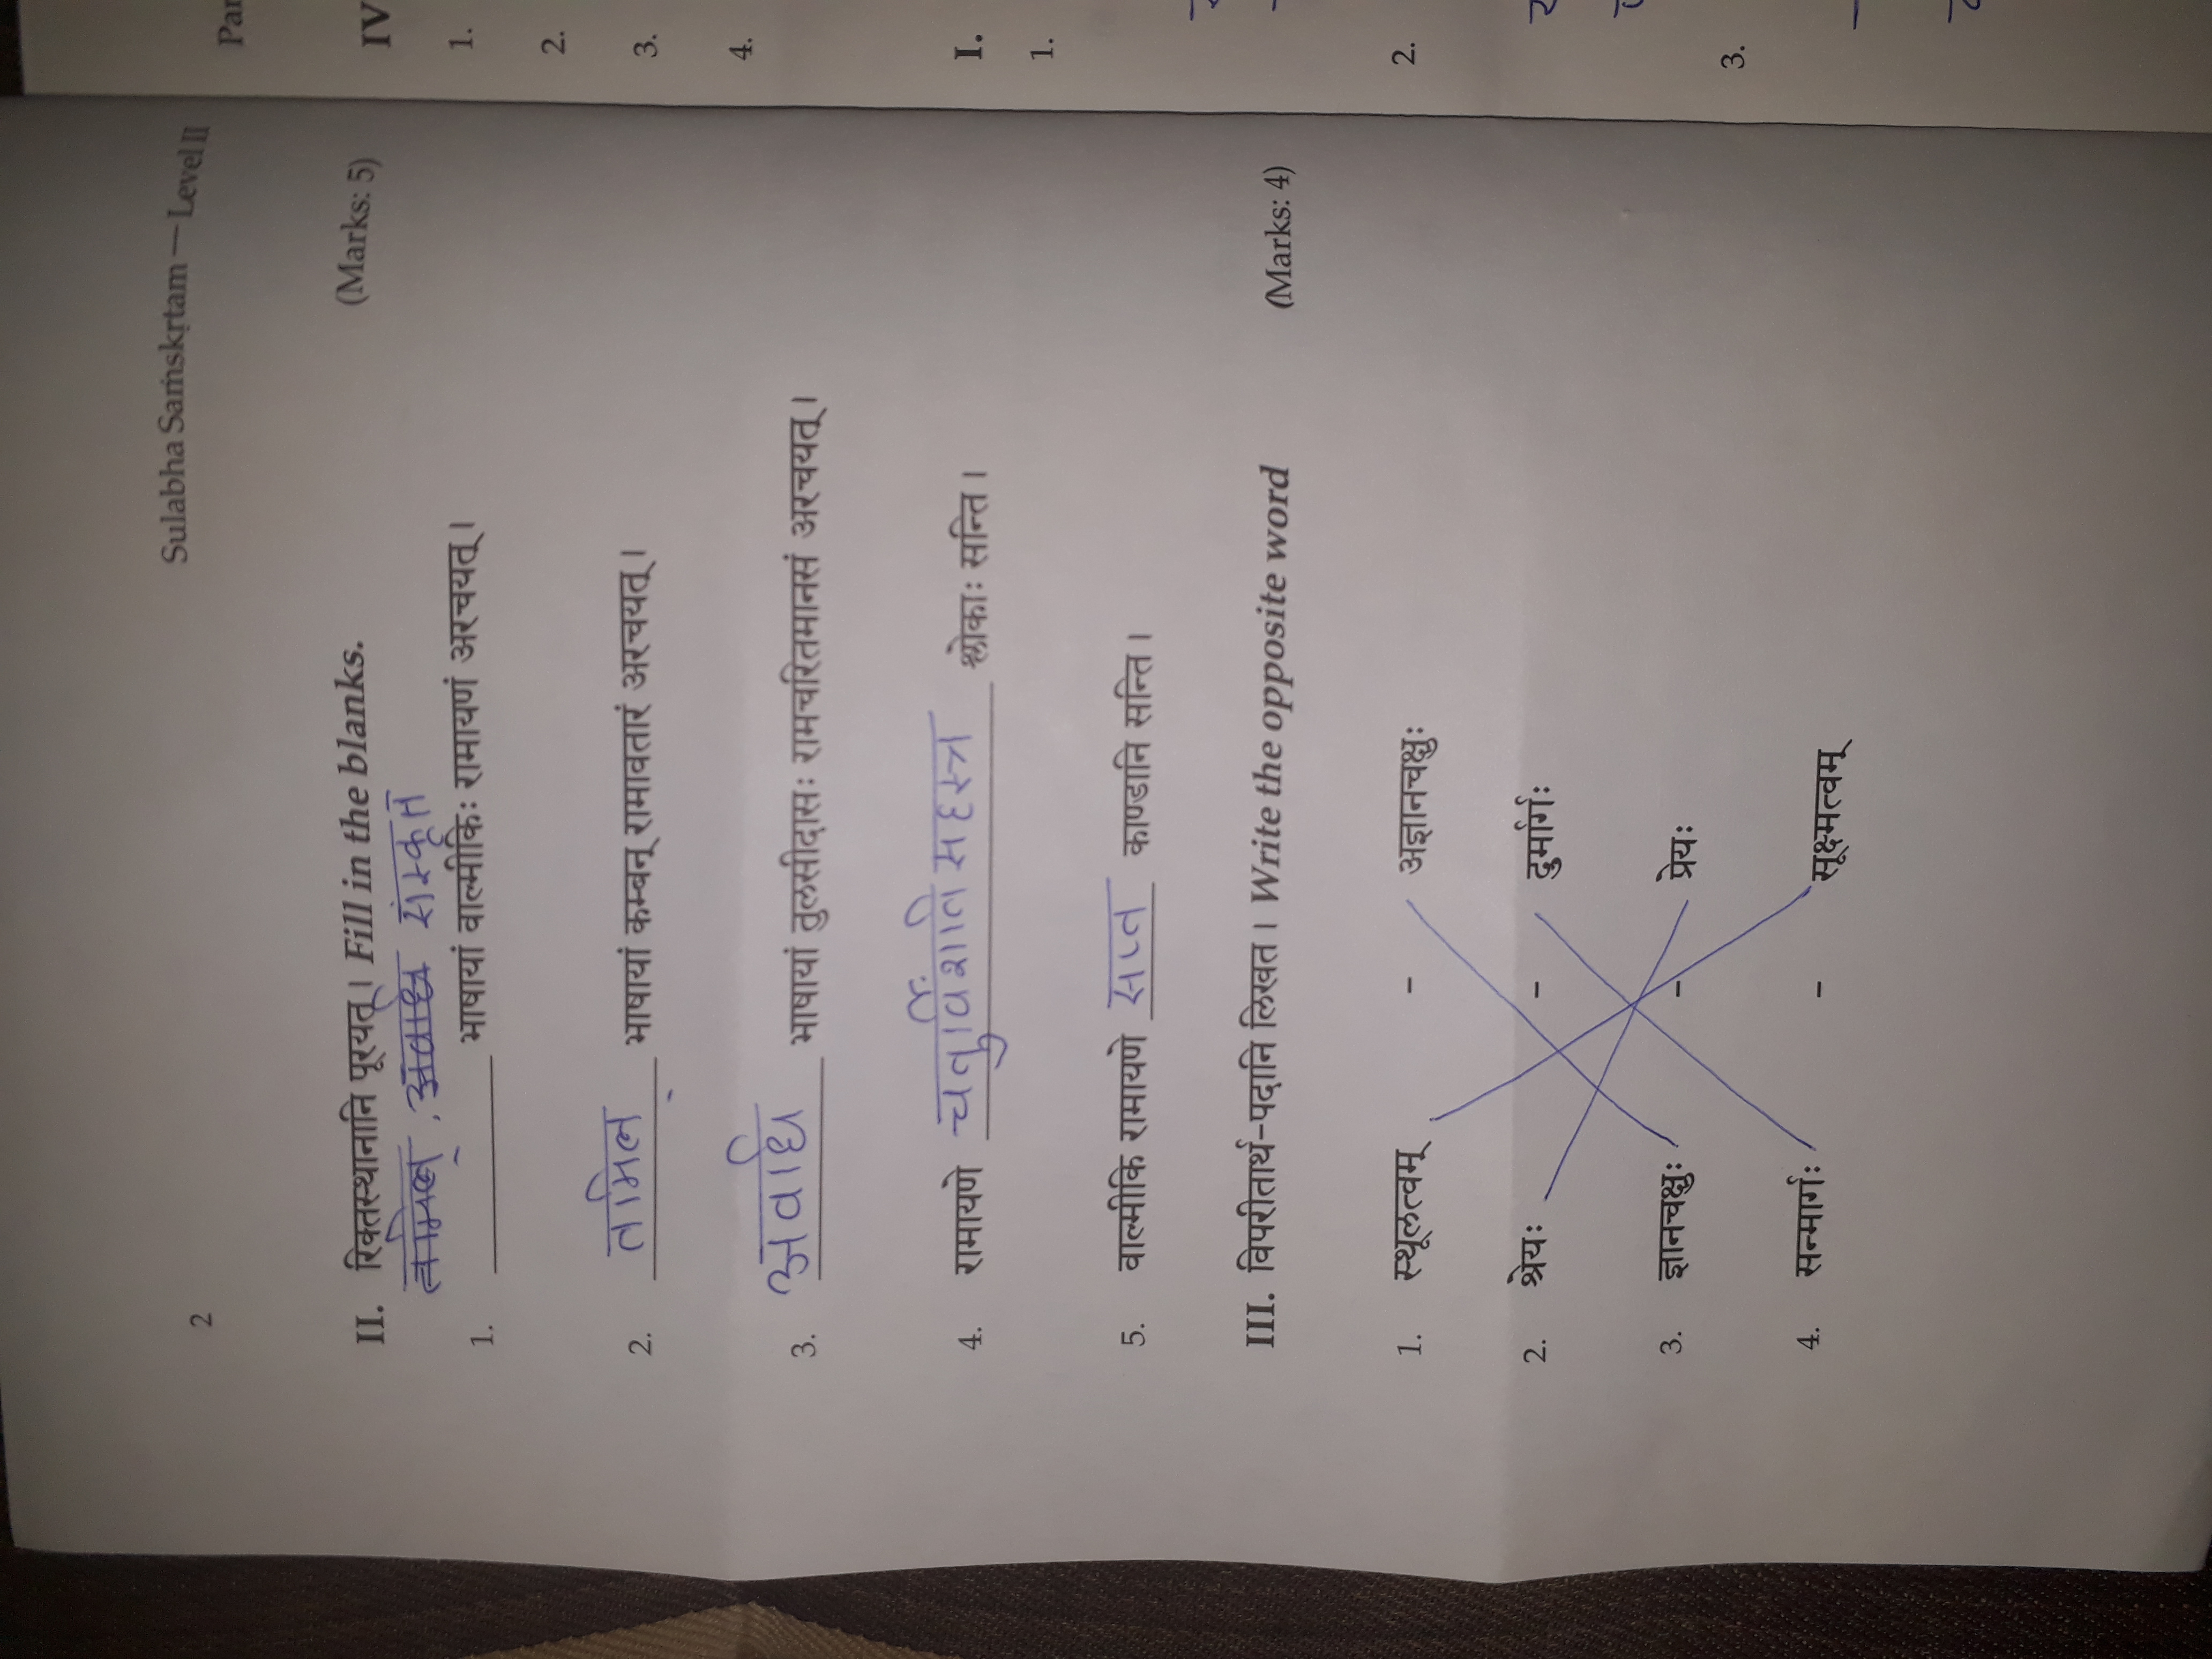 2
Sulabha Saṁskṛtam — Level II
II. रिक्तस्थानानि पूरयत् । Fill in the blanks. (Marks: 5)
तमिल् , अवधि संस्कृत
1. ____ भाषायां वाल्मीकिः रामायणं अरचयत् ।
2. तमिल् भाषायां कम्बन् रामावतारं अरचयत् ।
3. अवाधि भाषायां तुलसीदासः रामचरितमानसं अरचयत् ।
4. रामायणे चतुर्विंशति सहस्त्र श्लोकाः सन्ति ।
5. वाल्मीकि रामायणे सप्त काण्डानि सन्ति ।
III. विपरीतार्थ-पदानि लिखत । Write the opposite word (Marks: 4)
1. स्थूलत्वम् - अज्ञानचक्षुः
2. श्रेयः - दुर्मार्गः
3. ज्ञानचक्षुः - प्रेयः
4. सन्मार्गः - सूक्ष्मत्वम्
IV
1.
2.
3.
4.
I.
1.
2.
3.